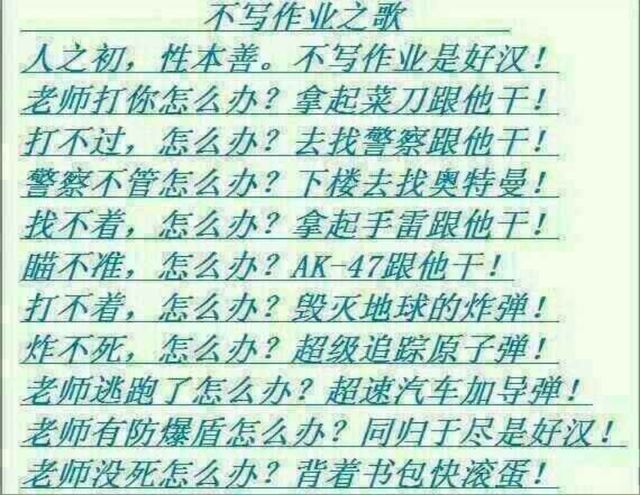 不写作业之歌
人之初，性本善。不写作业是好汉！
老师打你怎么办？拿起菜刀跟他干！
打不过，怎么办？去找警察跟他干！
警察不管怎么办？下楼去找奥特曼！
找不着，怎么办？拿起手雷跟他干！
瞄不准，怎么办？AK-47跟他干！
打不着，怎么办？毁灭地球的炸弹！
炸不死，怎么办？超级追踪原子弹！
老师逃跑了怎么办？超速汽车加导弹！
老师有防爆盾怎么办？同归于尽是好汉！
老师没死怎么办？背着书包快滚蛋！